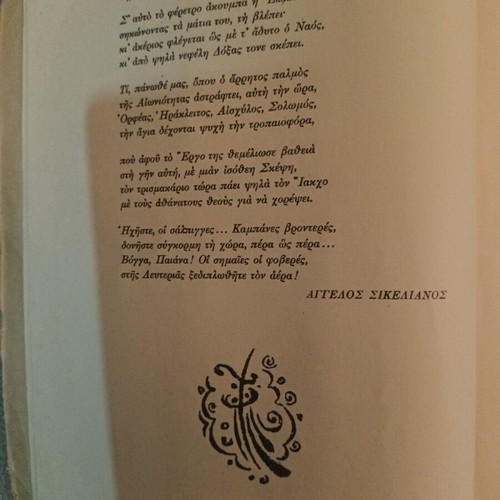 Σ' αὐτὸ τὸ φέρετρο ἀκουμπᾶ ἡ
σηκώνοντας τὰ μάτια του, τὴ βλέπει
κι' ἀκέριος φλέγεται ὣς μὲ τ' ἄδυτο ὁ Ναός,
κι' ἀπὸ ψηλὰ νεφέλη Δόξας τονε σκέπει.
Τί, πάνωθέ μας, ὅπου ὁ ἄρρητος παλμὸς
τῆς Αἰωνιότητας ἀστράφτει, αὐτὴ τὴν ὥρα,
Ὀρφέας, Ἡράκλειτος, Αἰσχύλος, Σολωμός,
τὴν ἅγια δέχονται ψυχὴ τὴν τροπαιοφόρα,
ποὺ ἀφοῦ τὸ Ἔργο της θεμέλιωσε βαθειὰ
στὴ γῆν αὐτή, μὲ μιὰν ἰσόθεη Σκέψη,
τὸν τρισμακάριο τώρα πάει ψηλὰ τὸν Ἴακχο
μὲ τοὺς ἀθάνατους θεοὺς γιὰ νὰ χορέψει.
Ἠχῆστε, οἱ σάλπιγγες... Καμπάνες βροντερές,
δονῆστε σύγκορμη τὴ χώρα, πέρα ὣς πέρα...
Βόγγα, Παιάνα! Οἱ σημαῖες οἱ φοβερές,
στῆς Λευτεριᾶς ξεδιπλωθῆτε τὸν ἀέρα!
ΑΓΓΕΛΟΣ ΣΙΚΕΛΙΑΝΟΣ